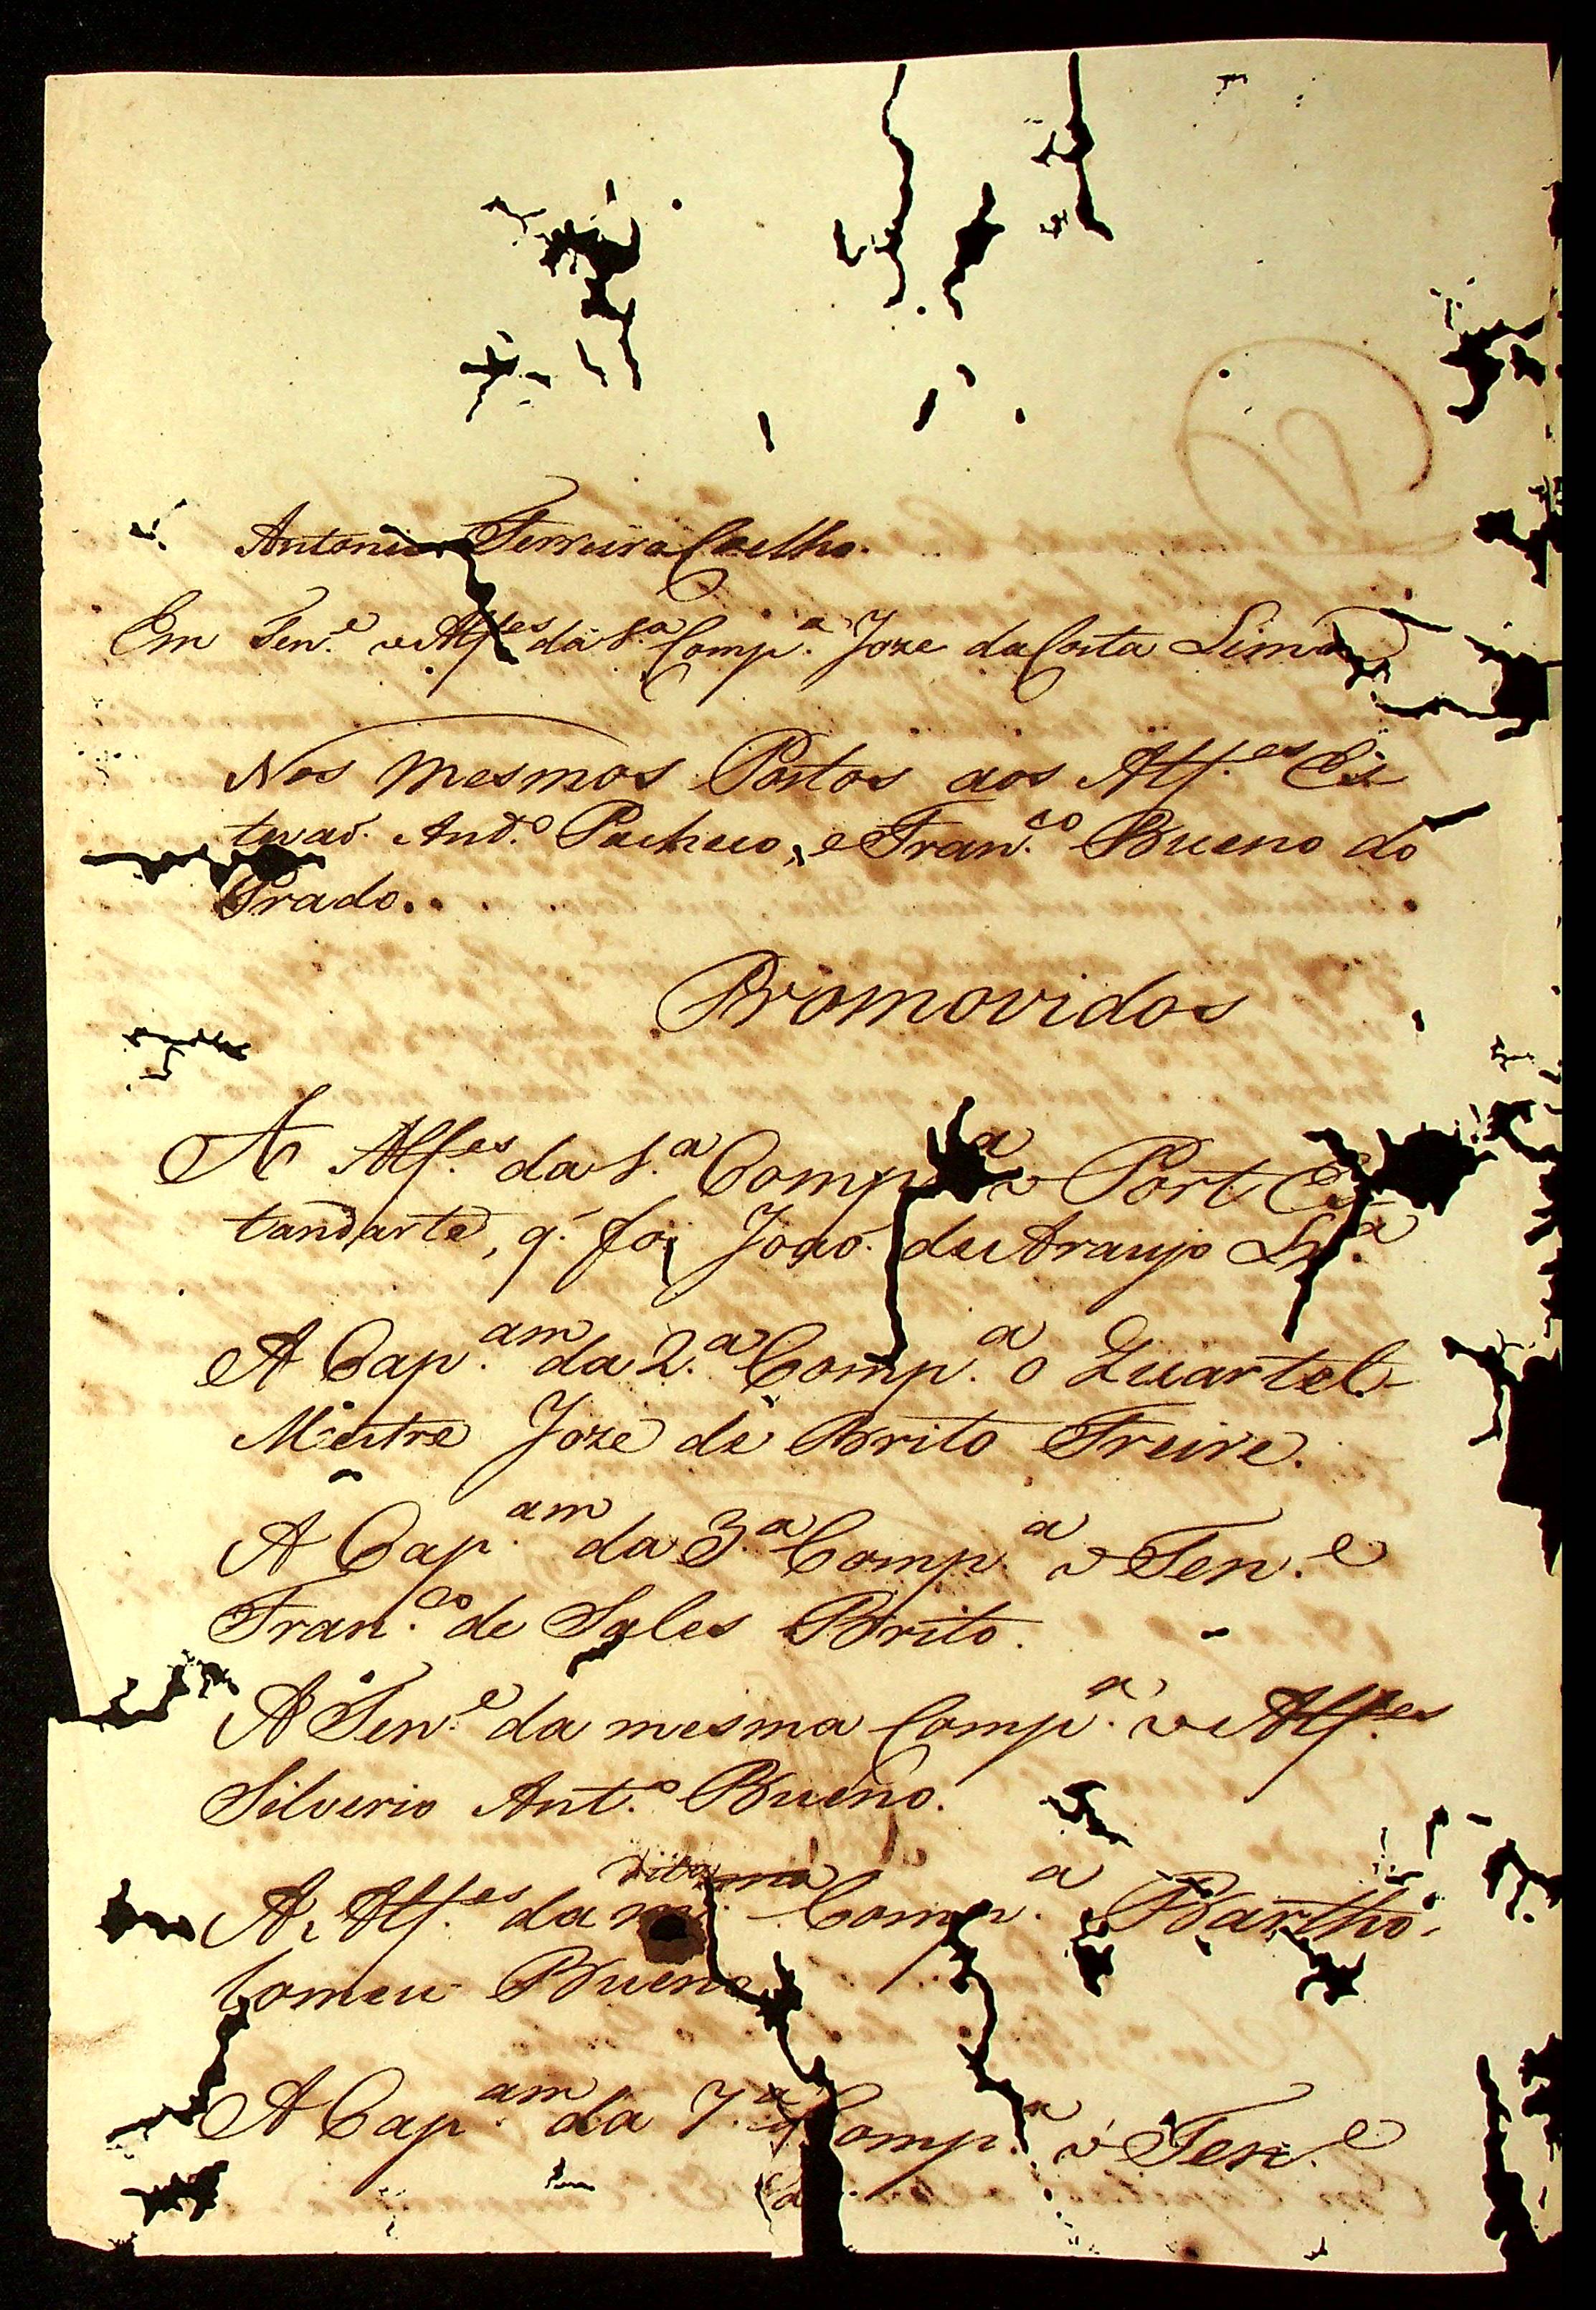 Antonio Ferreira Coelho.
Em Ten.e o Alf.es da 1.a Comp.a Joze da Costa Lima
Nos mesmos Postos aos Alf.es Es
tevaõ And.o Pacheco, e Fran.co Bueno do
Prado.
Promovidos
A Alf.es da 1.a Comp.a o Port Es
tandarte, q. foi Joaõ de Araujo Lx.a
A Cap.am da 2.a Comp.a o Quartel-
Mestre Joze de Brito Freire.
A Cap.am da 3.a Comp.a o Ten.e
Fran.co de Sales Brito.
A Ten.e da mesma Comp.a o Alf.es
Silverio Ant.o Bueno.
dita
A Alf.es da Comp.a Bartho-
lomeu Bueno
A Cap.am da 7.a Comp.a o Ten.e